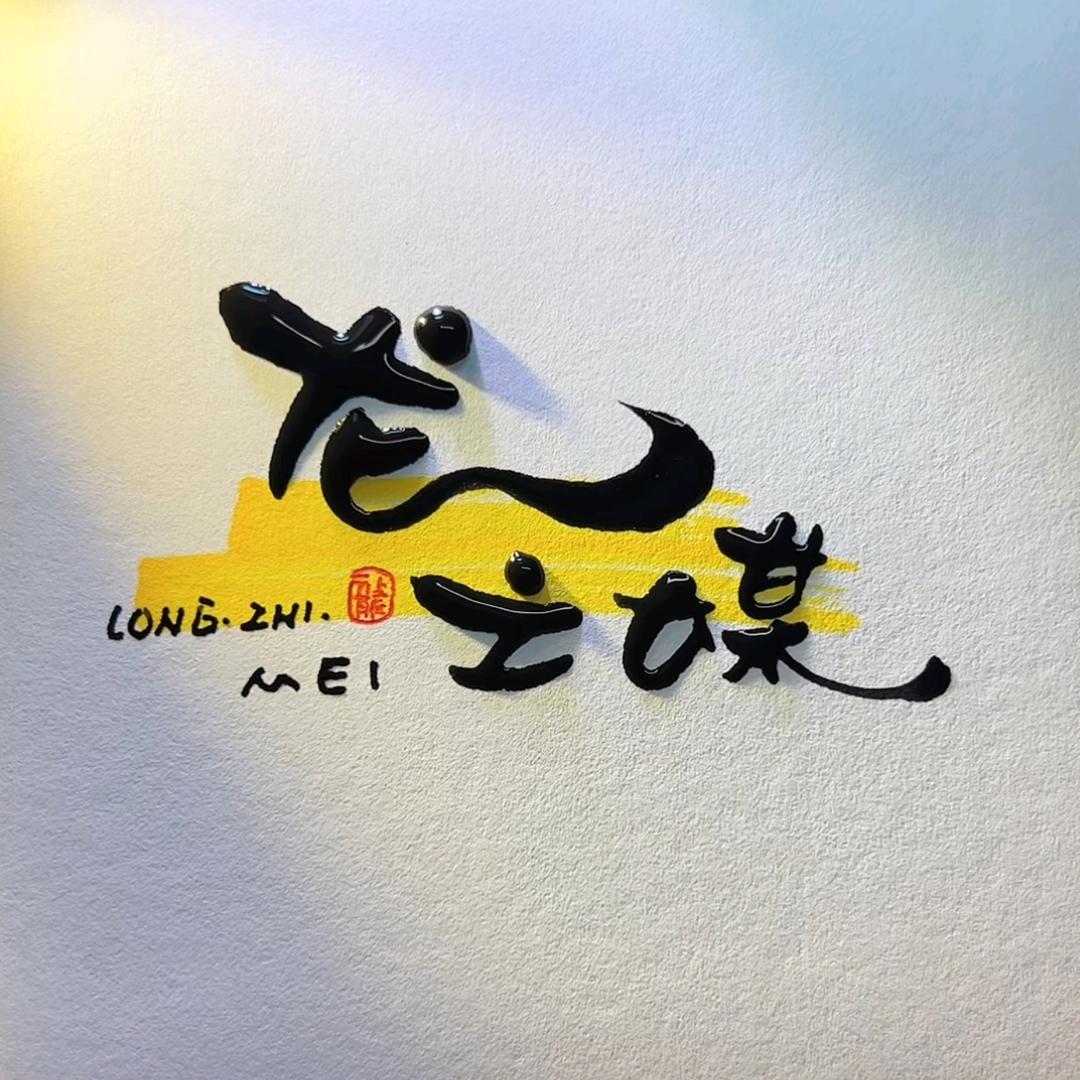 龙
之媒
LONG.ZHI.
MEI